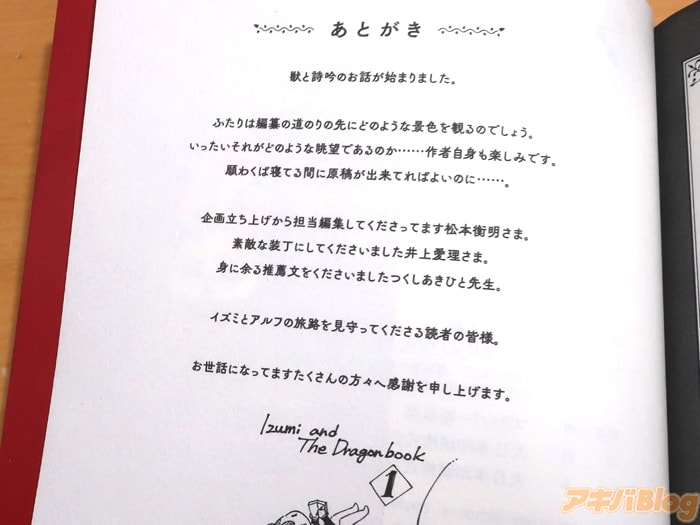 あとがき
獣と詩吟のお話が始まりました。
ふたりは編纂の道のりの先にどのような景色を観るのでしょう。
いったいそれがどのような眺望であるのか……作者自身も楽しみです。
願わくば寝てる間に原稿が出来てればよいのに……。
企画立ち上げから担当編集してくださってます松本衡明さま。
素敵な装丁にしてくださいました井上愛理さま。
身に余る推薦文をくださいましたつくしあきひと先生。
イズミとアルフの旅路を見守ってくださる読者の皆様。
お世話になってますたくさんの方々へ感謝を申し上げます。
Izumi and
The Dragonbook
1
アキバBlog